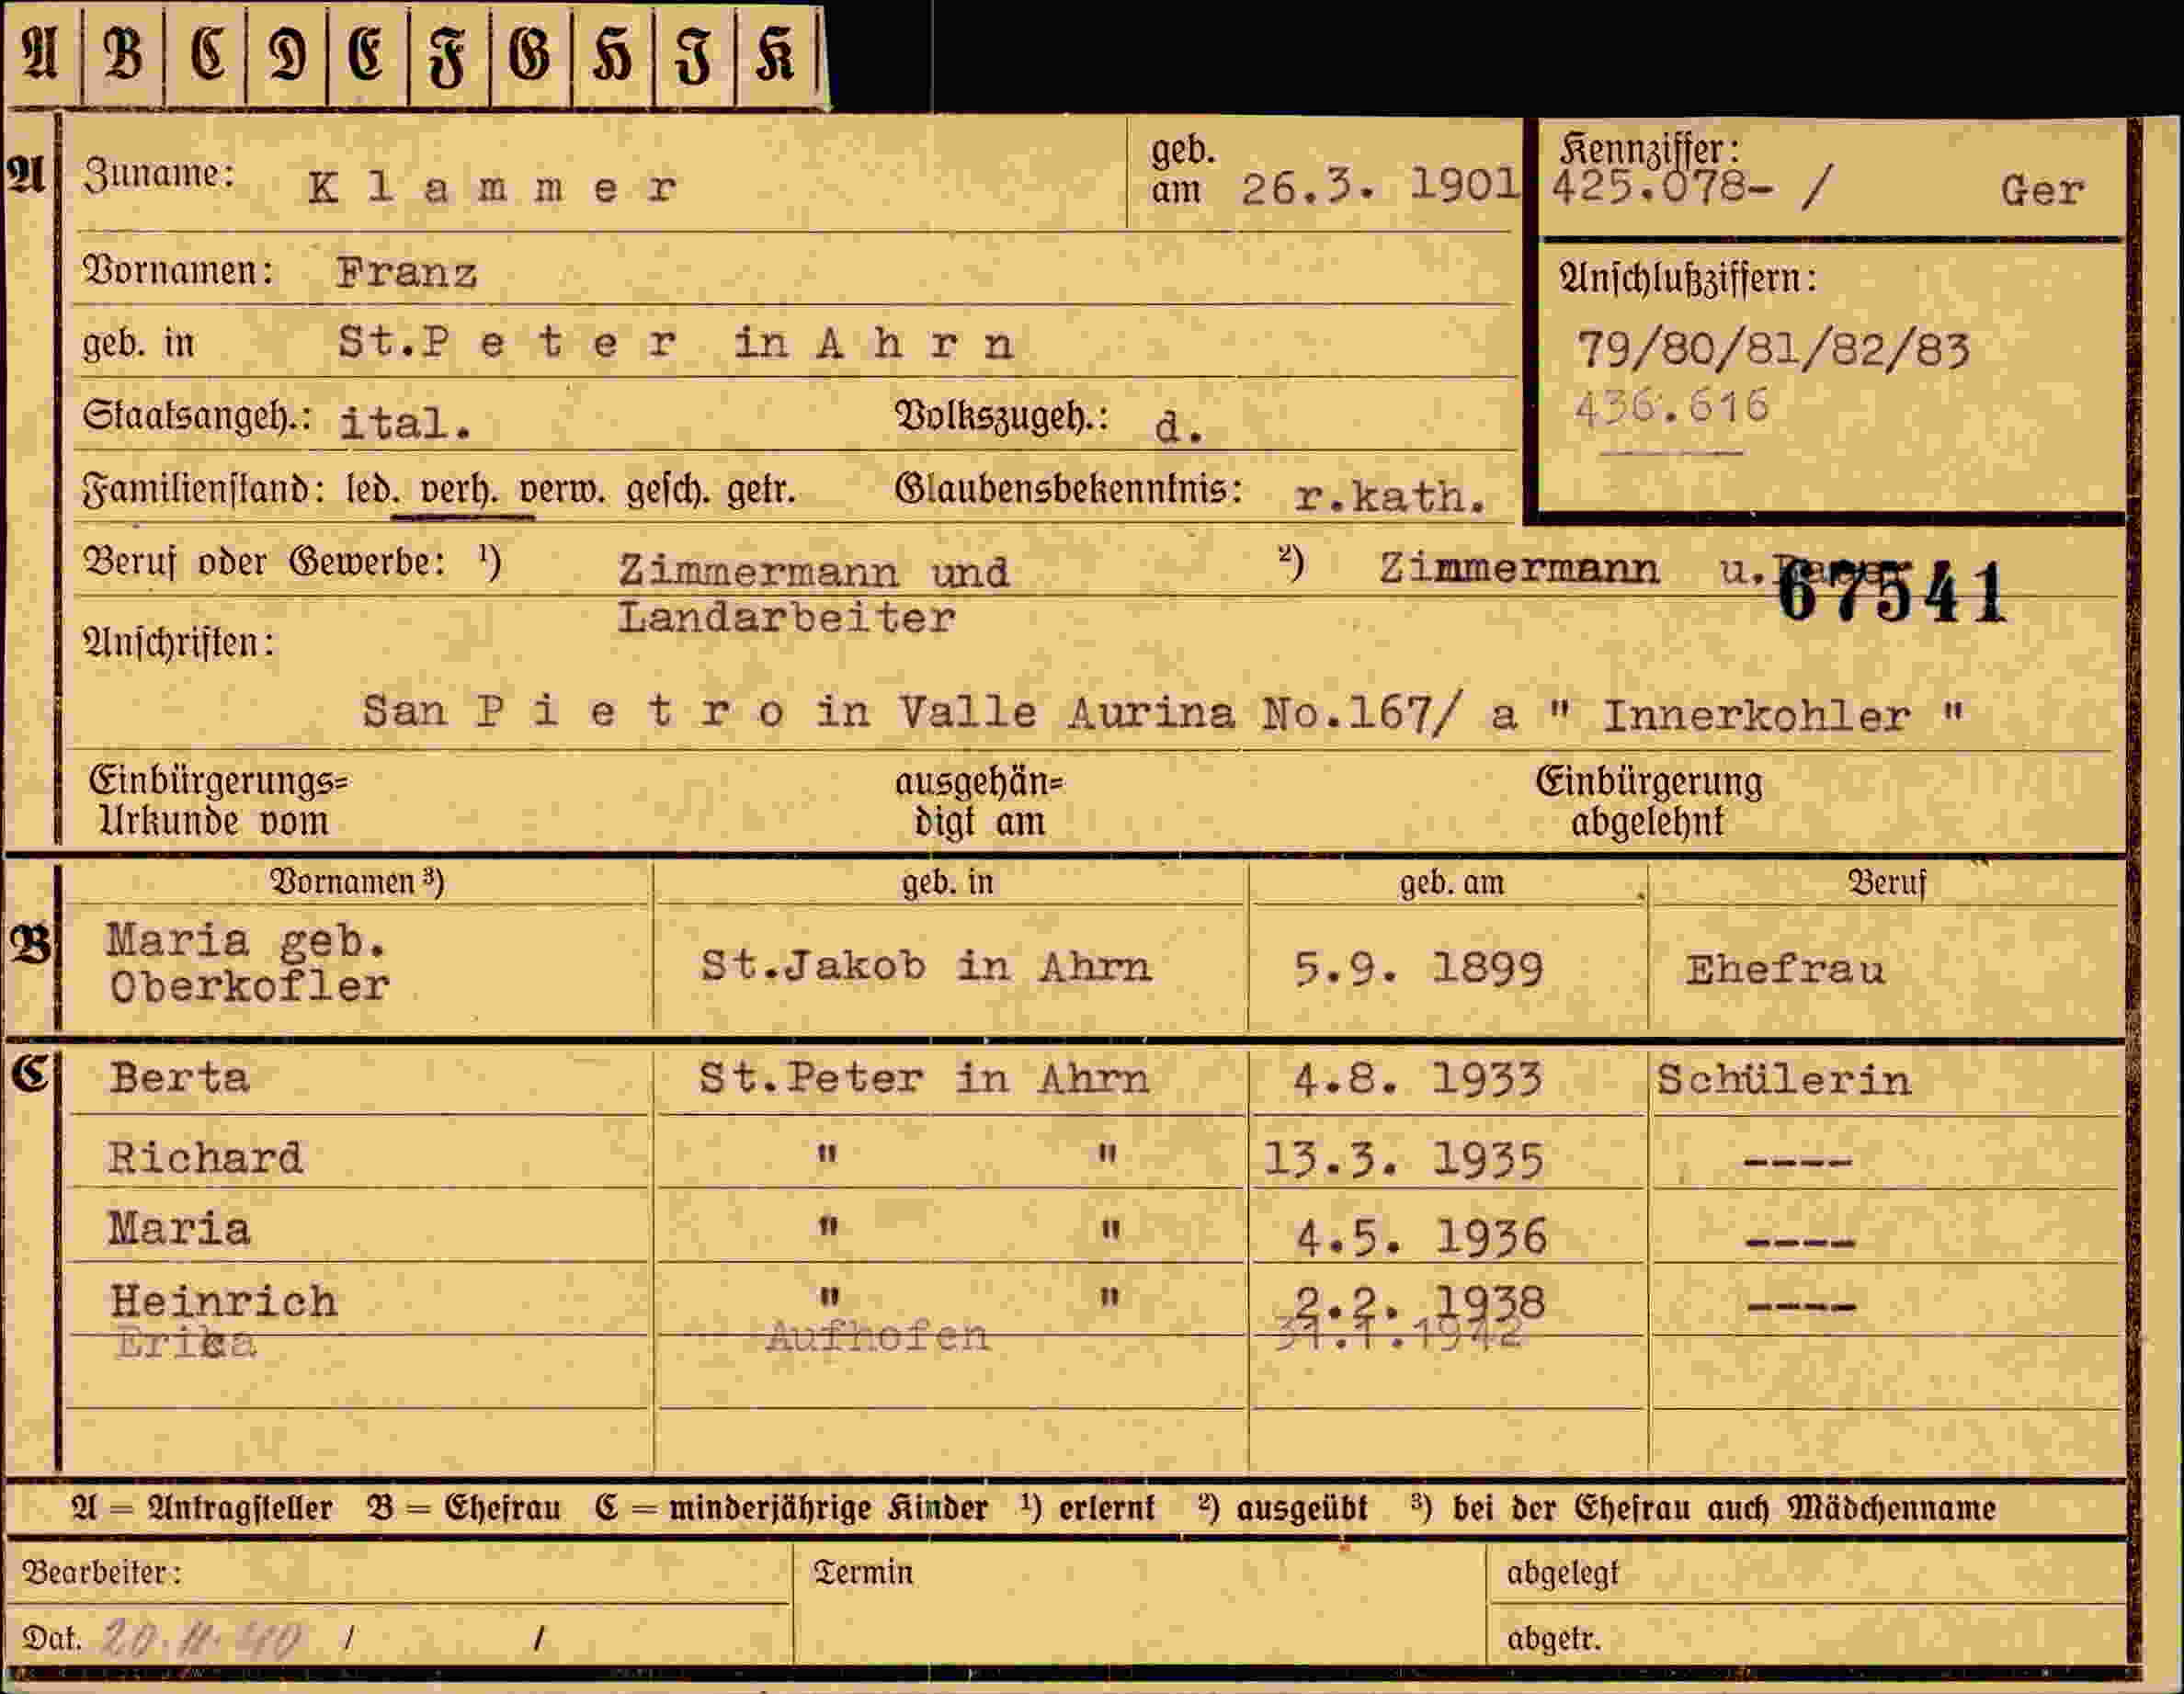 A B C D E F G H I K
A Zuname: Klammer geb. am 26.3. 1901 Kennziffer: 425.078- / Ger
Vornamen: Franz
Anschlußziffern:
geb. in St.Peter in Ahrn 79/80/81/82/83
Staatsangeh.: ital. Volkszugeh.: d. 436.616
Familienstand: led. verh. verw. gesch. getr. Glaubensbekenntnis: r.kath.
Beruf oder Gewerbe: ¹) Zimmermann und ²) Zimmermann u.
67541
Landarbeiter
Anschriften:
San Pietro in Valle Aurina No.167/ a " Innerkohler "
Einbürgerungs= ausgehän= Einbürgerung
Urkunde vom digt am abgelehnt
Vornamen ³) geb. in geb. am Beruf
B Maria geb.
Oberkofler St.Jakob in Ahrn 5.9. 1899 Ehefrau
C Berta St.Peter in Ahrn 4.8. 1933 Schülerin
Richard " " 13.3. 1935 ----
Maria " " 4.5. 1936 ----
Heinrich " " 2.2. 1938 ----
Erika Aufhofen 31.1.1942
A = Antragsteller B = Ehefrau C = minderjährige Kinder ¹) erlernt ²) ausgeübt ³) bei der Ehefrau auch Mädchenname
Bearbeiter: Termin abgelegt
Dat. 20.11.40 / / abgetr.